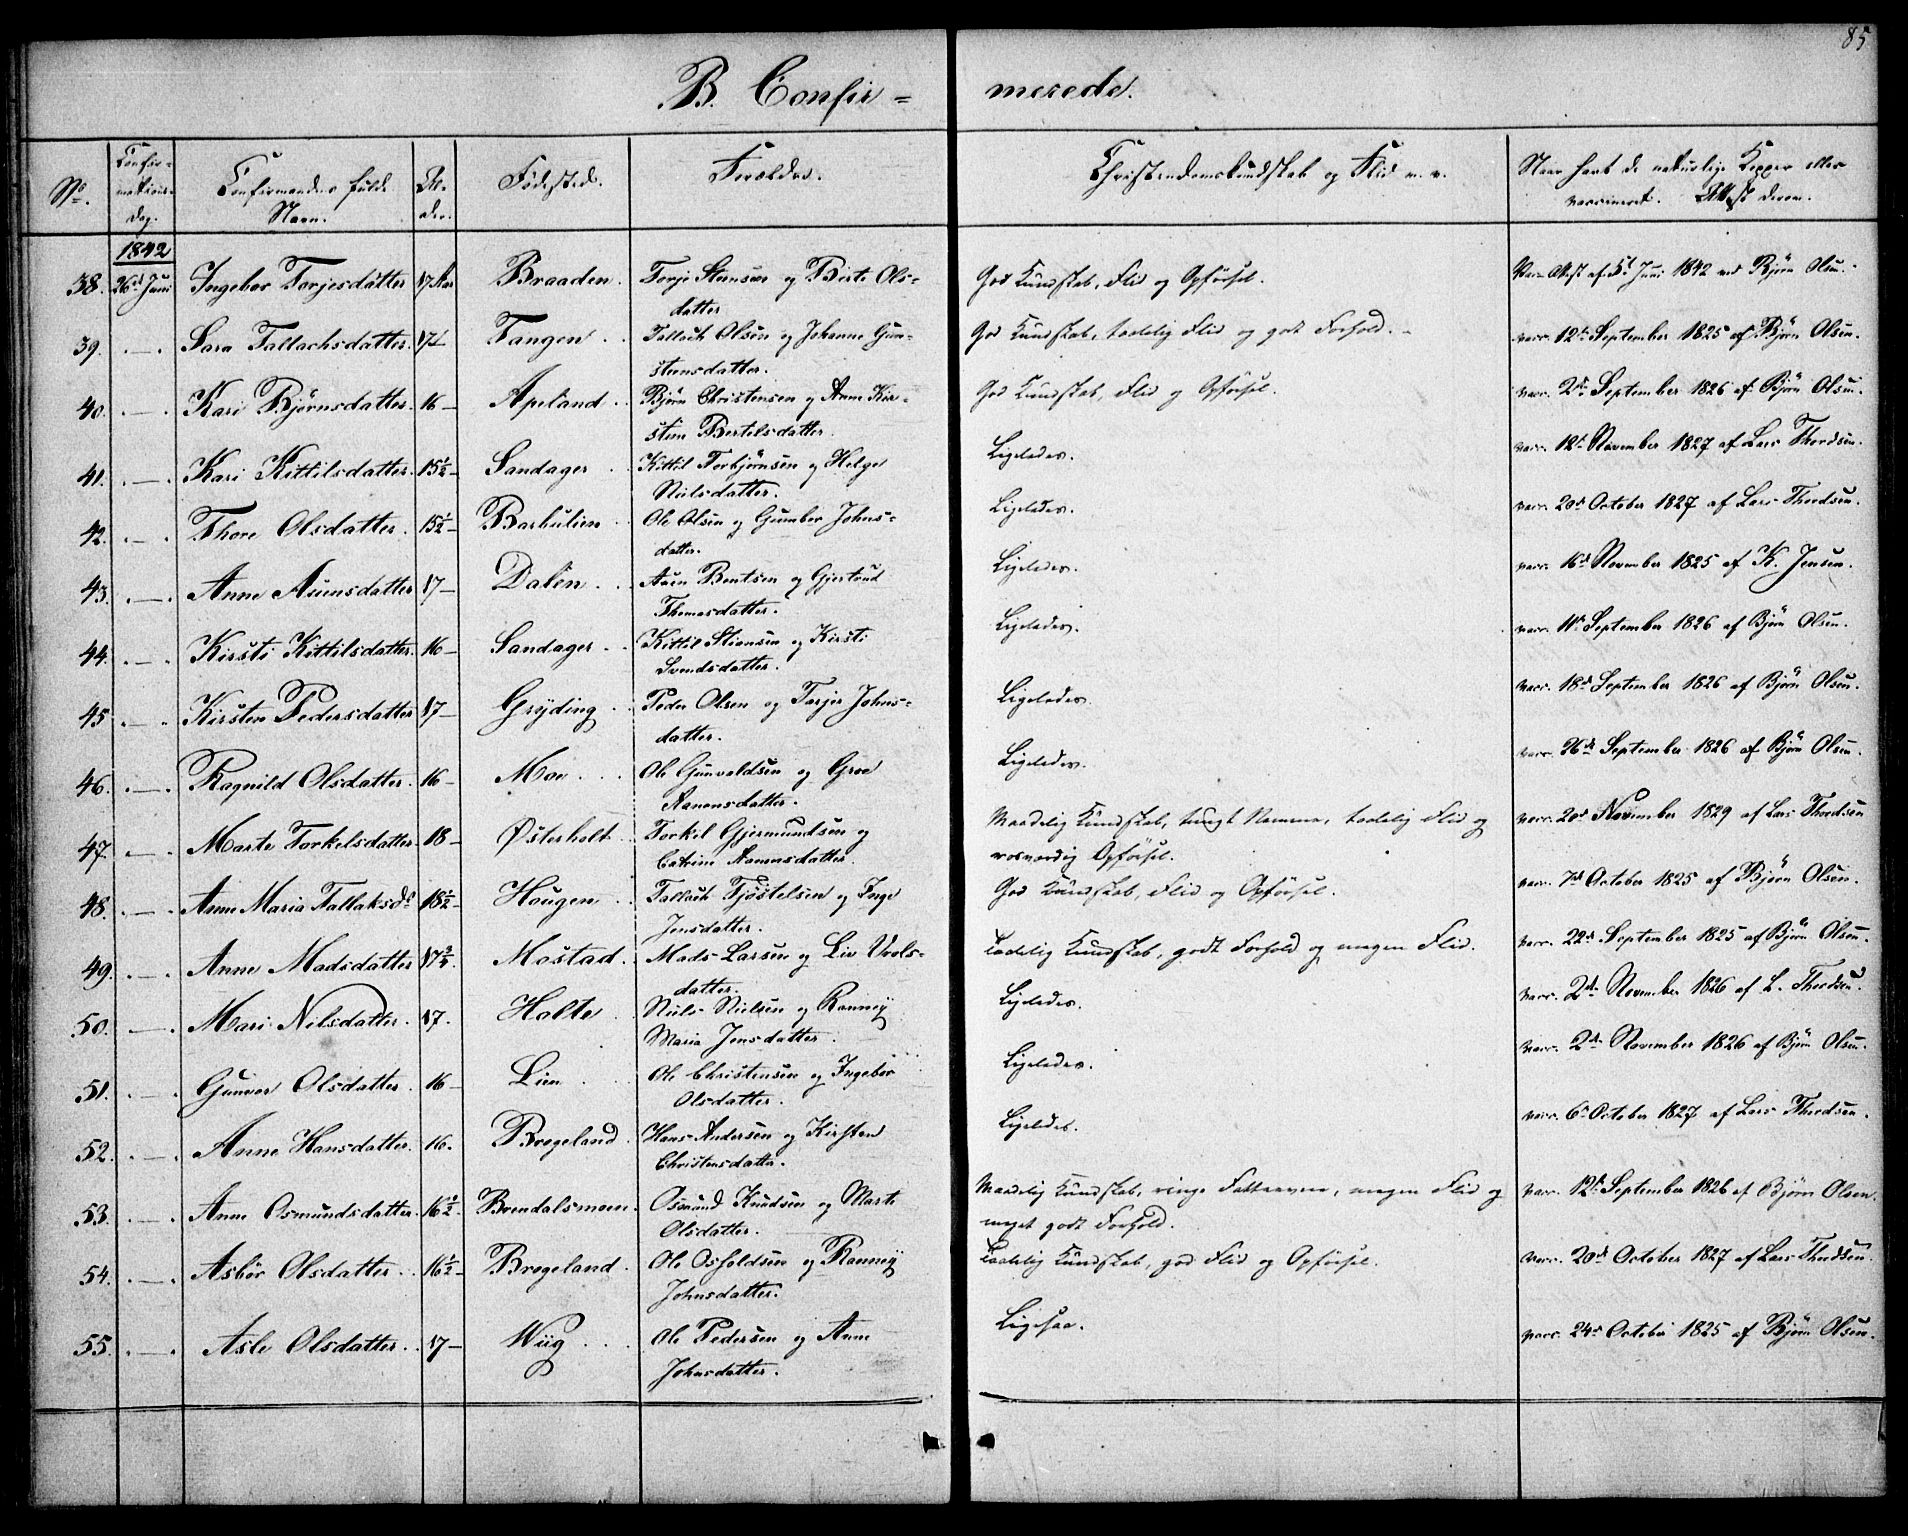 85
B. Confir = merede.
No. Confirmations-Dag. Confirmandens fulde Navn. Alder. Fødested. Forældre. Christendomskundskab og Flid m. v. Naar havt de naturlige Kopper eller vaccineret. Attest derom.
1842
38. 26d Juni Ingebor Torjesdatter 17 Aar Braaden. Torje Steensen og Birte Ols-
datter God Kundskab, Flid og Opførsel. Vacc. Attest af 5t Juni 1842 ved Bjørn Olsen.
39. -- Sara Tallachsdatter. 17 Tangen. Tallach Olsen og Johanne Gun-
steensdatter. God Kundskab, taalelig Flid og godt Forhold. vacc. 12t September 1825 af Bjørn Olsen.
40. -- Kari Bjørnsdatter. 16- Apeland. Bjørn Christensen og Anne Kir-
stine Bertelsdatter. God Kundskab, Flid og Opførsel. vacc. 2den September 1826 af Bjørn Olsen.
41. -- Kari Kittilsdatter. 15½- Sandager. Kittil Torbjørnsen og Helge
Nielsdatter. Ligeledes. vacc. 12t November 1827 af Lars Thordsen.
42. -- Thore Olsdatter. 15½- Barbulien. Ole Olsen og Gumbor Johns-
datter. Ligeledes. vacc. 20d October 1827 af Lars Thordsen.
43. -- Anne Aunsdatter 17- Dalen. Auen Bentsen og Gjertrud
Thomasdatter. Ligeledes. vacc. 16d November 1825 af K. Jensen.
44. -- Kirsti Kittilsdatter. 16- Sandager. Kittil Steensen og Kirsti
Svendsdatter. Ligeledes. vacc. 11t September 1826 af Bjørn Olsen.
45. -- Kirsten Pedersdatter 17- Gryding. Peder Olsen og Tarjer Johns-
datter. Ligeledes. vacc. 18d September 1826 af Bjørn Olsen.
46. -- Ragnild Olsdatter. 16- Moe. Ole Gunvaldsen og Groe
Aanensdatter. Ligeledes. vacc. 26d September 1826 af Bjørn Olsen.
47. -- Marte Torkelsdatter 18- Østerholt. Torkel Gjermundsen og
Catrine Aanensdatter. Maadelig Kundskab, tungt Nemme, taalelig Flid og
rosværdig Opførsel. vacc. 20d November 1829 af Lars Thordsen
48. -- Anne Maria Tallaksdr 18½- Hougen. Tallach Tjøstelsen og Inge
Jensdatter. God Kundskab, Flid og Opførsel. vacc. 7d October 1825 af Bjørn Olsen.
49. -- Anne Madsdatter 17¾. Mostad. Mads Larsen og Liv Uvols-
datter. Taalelig Kundskab, godt Forhold og megen Flid. vacc. 22d September 1825 af Bjørn Olsen.
50. -- Mari Nilsdatter. 17. Holte. Niels Nielsen og Ranney
Maria Jensdatter. Ligeledes. vacc. 2d November 1826 af L. Thordsen.
51. -- Gunvor Olsdatter. 16- Lien. Ole Christensen og Ingebor
Olsdatter. Ligeledes. vacc. 2d November 1826 af Bjørn Olsen.
52. -- Anne Hansdatter. 16. Brøgeland. Hans Andersen og Kirsten
Christensdatter. Ligeledes. vacc. 6d October 1827 af Lars Thordsen.
53. -- Anne Osmundsdatter. 16½. Brendalsmoen. Osmund Knudsen og Marte
Olsdatter. Maadelig Kundskab, ringe Fatteevne, megen Flid og
meget godt Forhold. vacc. 12t September 1826 af Bjørn Olsen.
54. -- Asbør Olsdatter. 16½- Brøgeland. Ole Osfoldsen og Ranney
Johnsdatter. Taalelig Kundskab, god Flid og Opførsel. vacc. 20d October 1827 af Lars Thordsen.
55. -- Asle Olsdatter. 17- Wiig. Ole Pedersen og Anne
Johnsdatter. Ligesaa. vacc. 24d October 1825 af Bjørn Olsen.